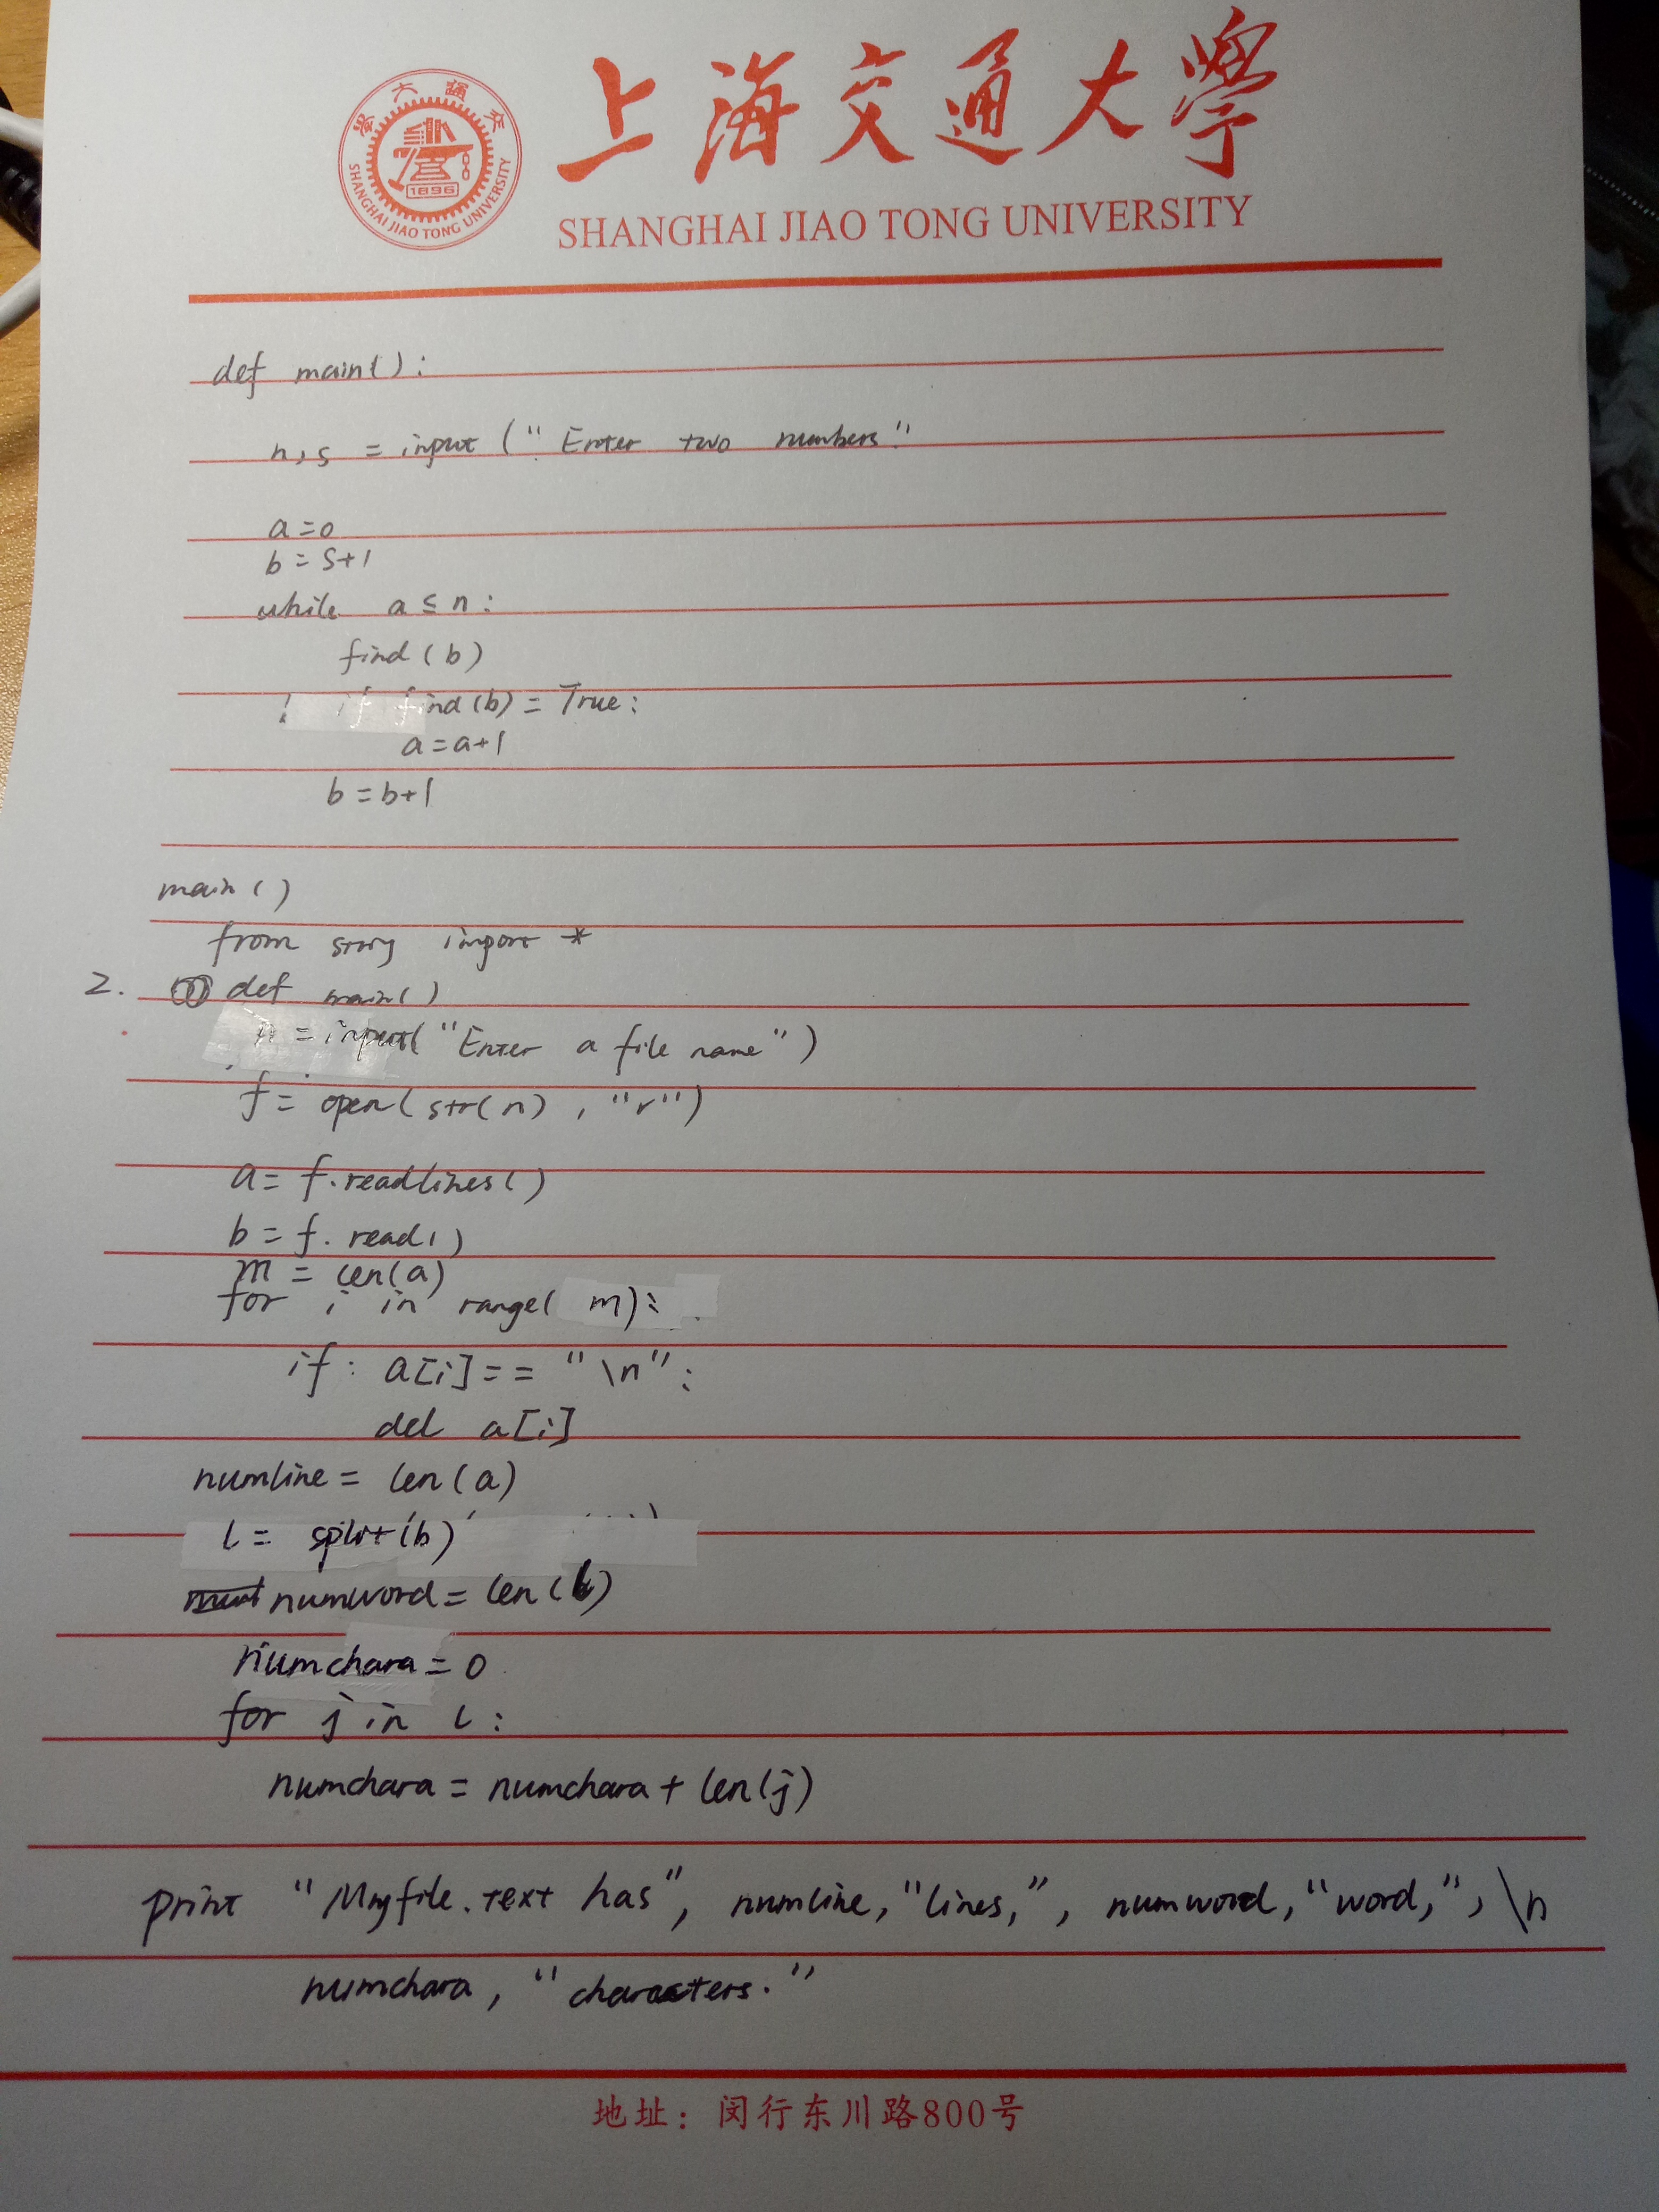 上海交通大學
SHANGHAI JIAO TONG UNIVERSITY
1896
SHANGHAI JIAO TONG UNIVERSITY
def main():
n,s = input (" Enter two numbers"
a=0
b=s+1
while a≤n:
find(b)
if find(b)=True:
a=a+1
b=b+1
main()
from string import *
2. ① def main()
n=input("Enter a file name")
f= open(str(n), "r")
a= f.readlines()
b= f. read()
m = len(a)
for i in range( m):
if: a[i]== "\n":
del a[i]
numline= len(a)
l= split(b)
numword= len(l)
numchara=0
for j in l:
numchara = numchara + len(j)
print "Myfile.text has", numline,"lines,", numword,"word,", \n
numchara, "characters."
地址：闵行东川路800号